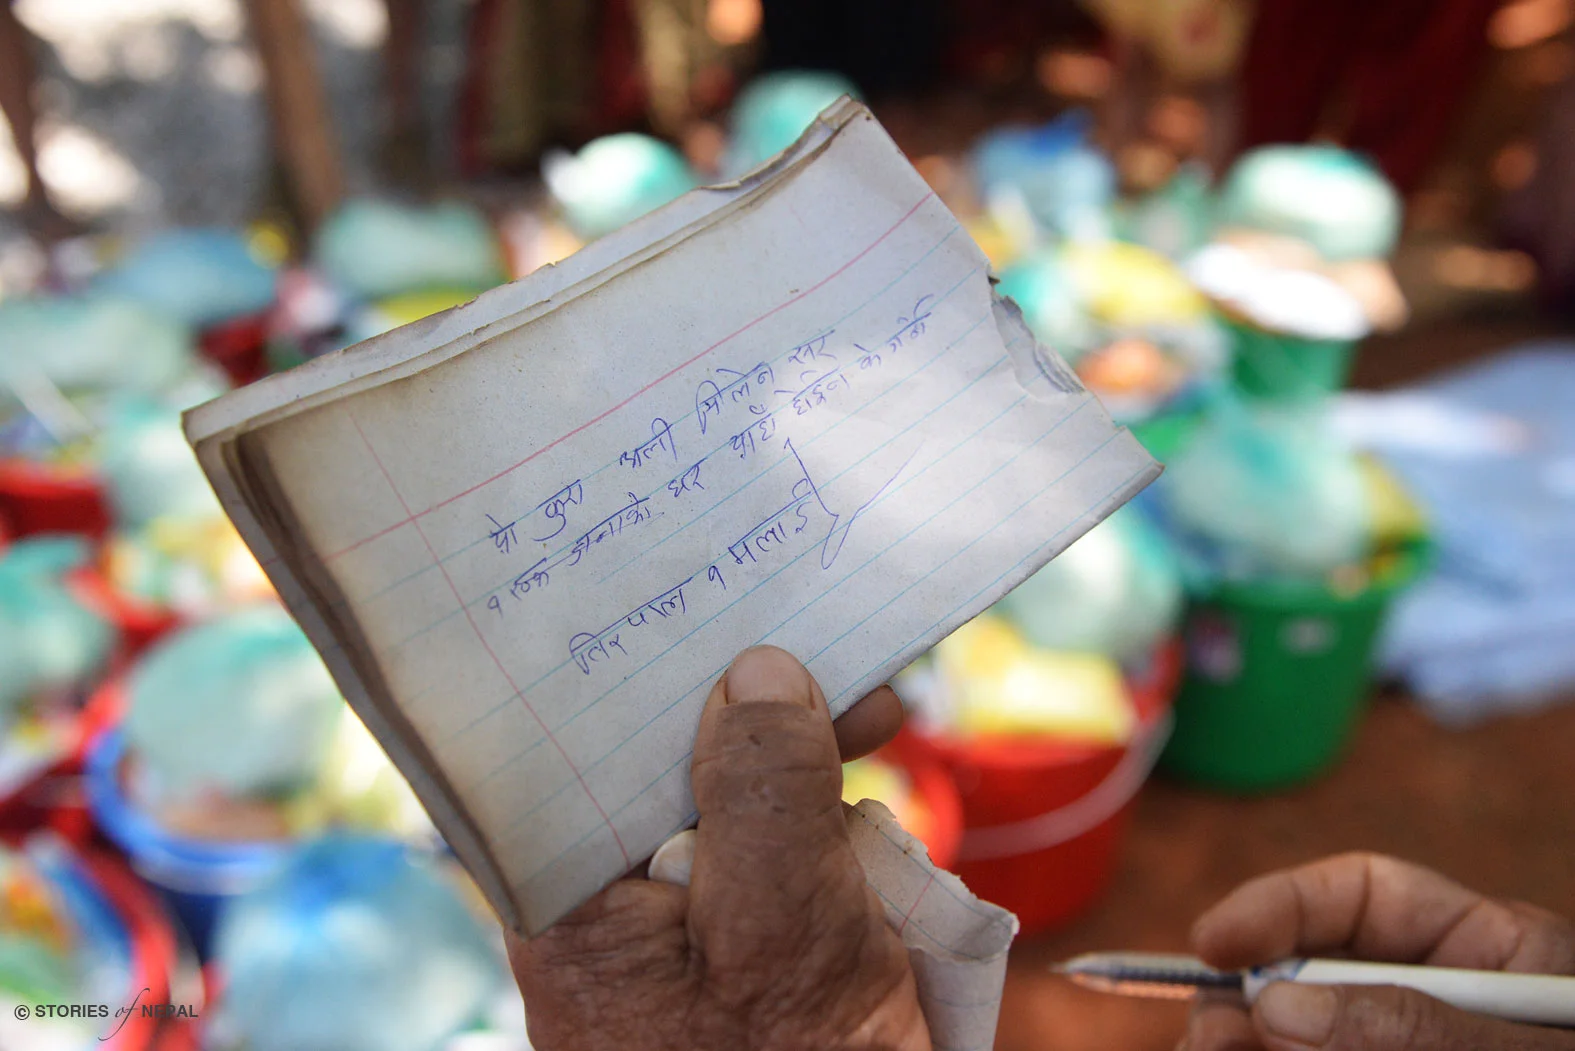 यो कुरा अली मिलेन सर
१ एक जनाको घर यहाँ होईन के गर्ने
तिरपाल १ मलाई
© STORIES of NEPAL